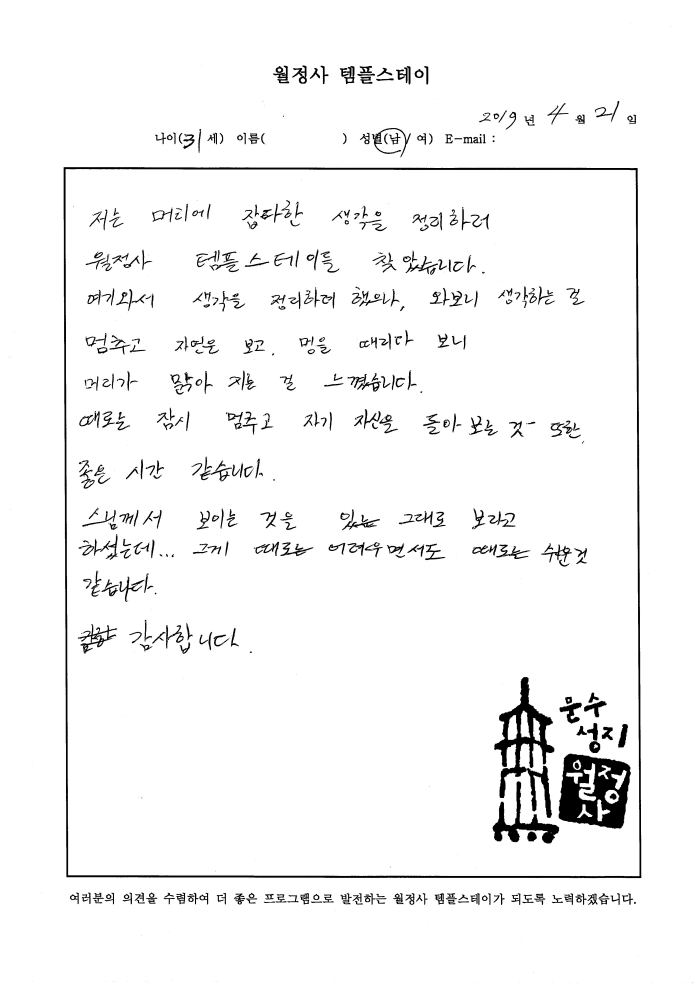 월정사 템플스테이
2019 년 4 월 21 일
나이(31 세) 이름( ) 성별(남/ 여) E-mail :
저는 머리에 잡다한 생각을 정리하러
월정사 템플스테이를 찾았습니다.
여기와서 생각을 정리하려 했으나, 와보니 생각하는 걸
멈추고 자연을 보고, 멍을 때리다 보니
머리가 맑아 지는 걸 느꼈습니다.
때로는 잠시 멈추고 자기 자신을 돌아 보는 것 또한,
좋은 시간 같습니다.
스님께서 보이는 것을 있는 그대로 보라고
하셨는데... 그게 때로는 어려우면서도 때로는 쉬운것
같습니다.
감사합니다.
문수
성지
월정
사
여러분의 의견을 수렴하여 더 좋은 프로그램으로 발전하는 월정사 템플스테이가 되도록 노력하겠습니다.